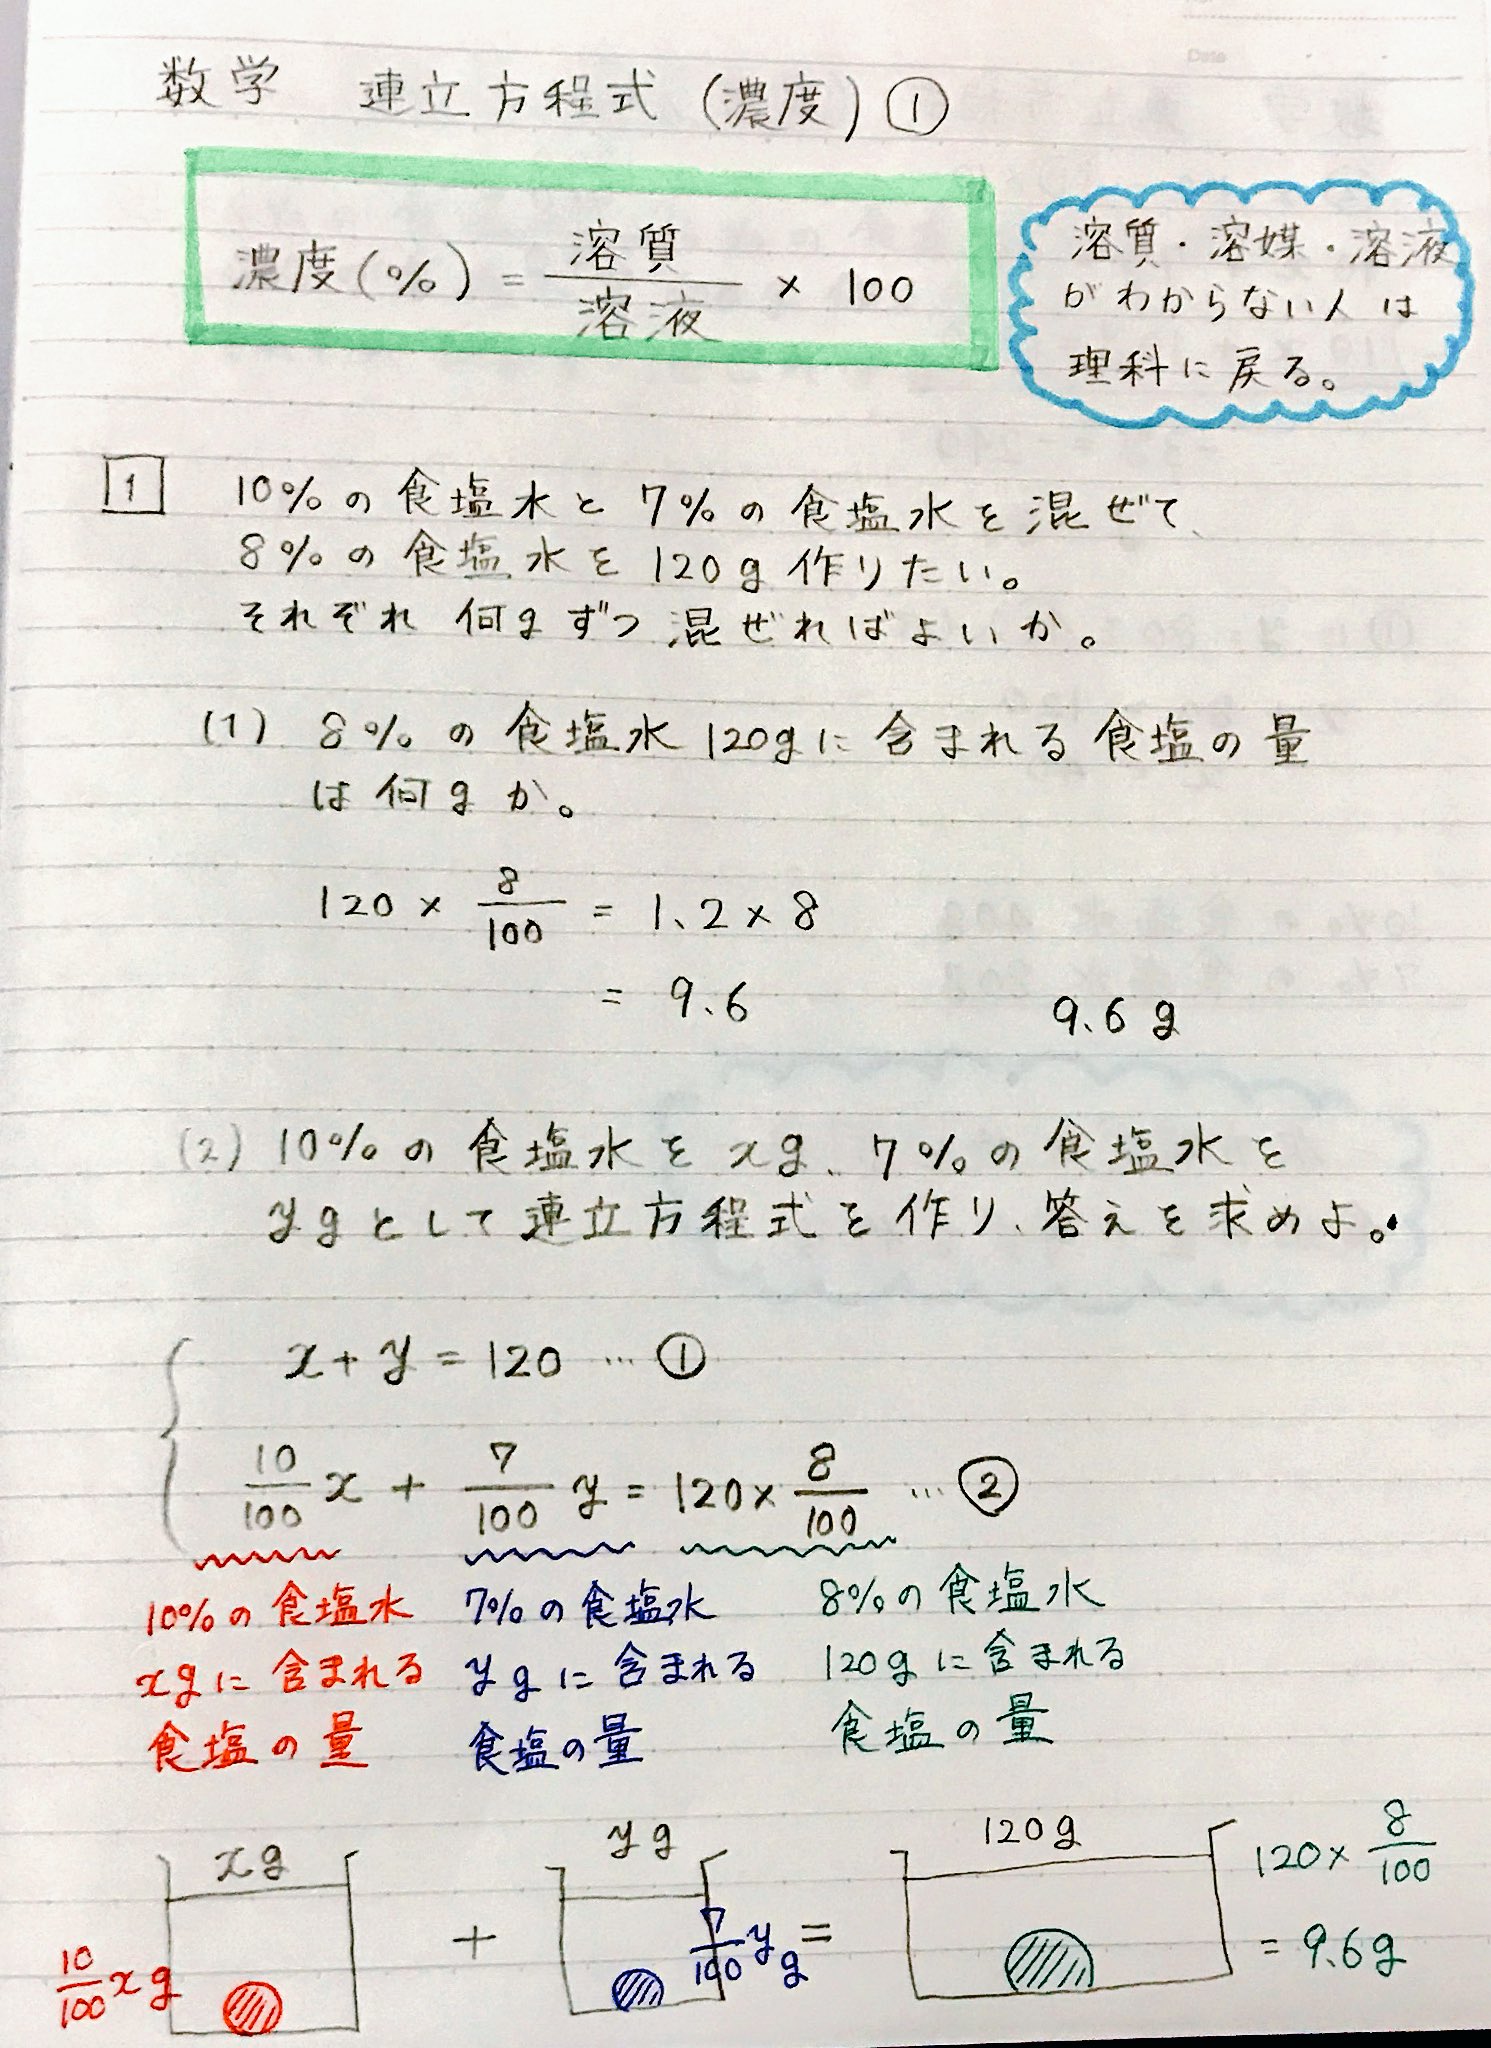 数学 連立方程式(濃度)①
濃度(%) = 溶質/溶液 × 100
溶質・溶媒・溶液
がわからない人は
理科に戻る。
1 10%の食塩水と7%の食塩水を混ぜて、
8%の食塩水を120g作りたい。
それぞれ何gずつ混ぜればよいか。
(1) 8%の食塩水120gに含まれる食塩の量
は何gか。
120 × 8/100 = 1.2 × 8
= 9.6 9.6g
(2) 10%の食塩水をxg、7%の食塩水を
ygとして連立方程式を作り、答えを求めよ。
x + y = 120 … ①
10/100 x + 7/100 y = 120 × 8/100 … ②
10%の食塩水
xgに含まれる
食塩の量
7%の食塩水
ygに含まれる
食塩の量
8%の食塩水
120gに含まれる
食塩の量
xg
10/100 xg
+
yg
7/100 yg
=
120g
120 × 8/100
= 9.6g